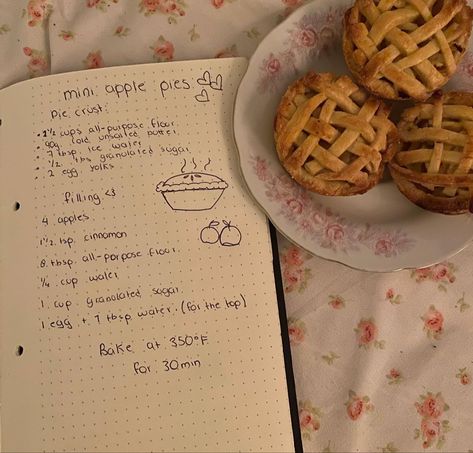 mini apple pies
pie crust
• 2½ cups all-purpose flour
• 90g cold unsalted butter
• 7 tbsp ice water
• ½ tbs granulated sugar
• 2 egg yolks
filling <3
4 apples
1½ tsp cinnamon
8 tbsp all-porpose flour
¼ cup water
1 cup granulated sugar
1 egg + 7 tbsp water (for the top)
Bake at 350°F
for 30min